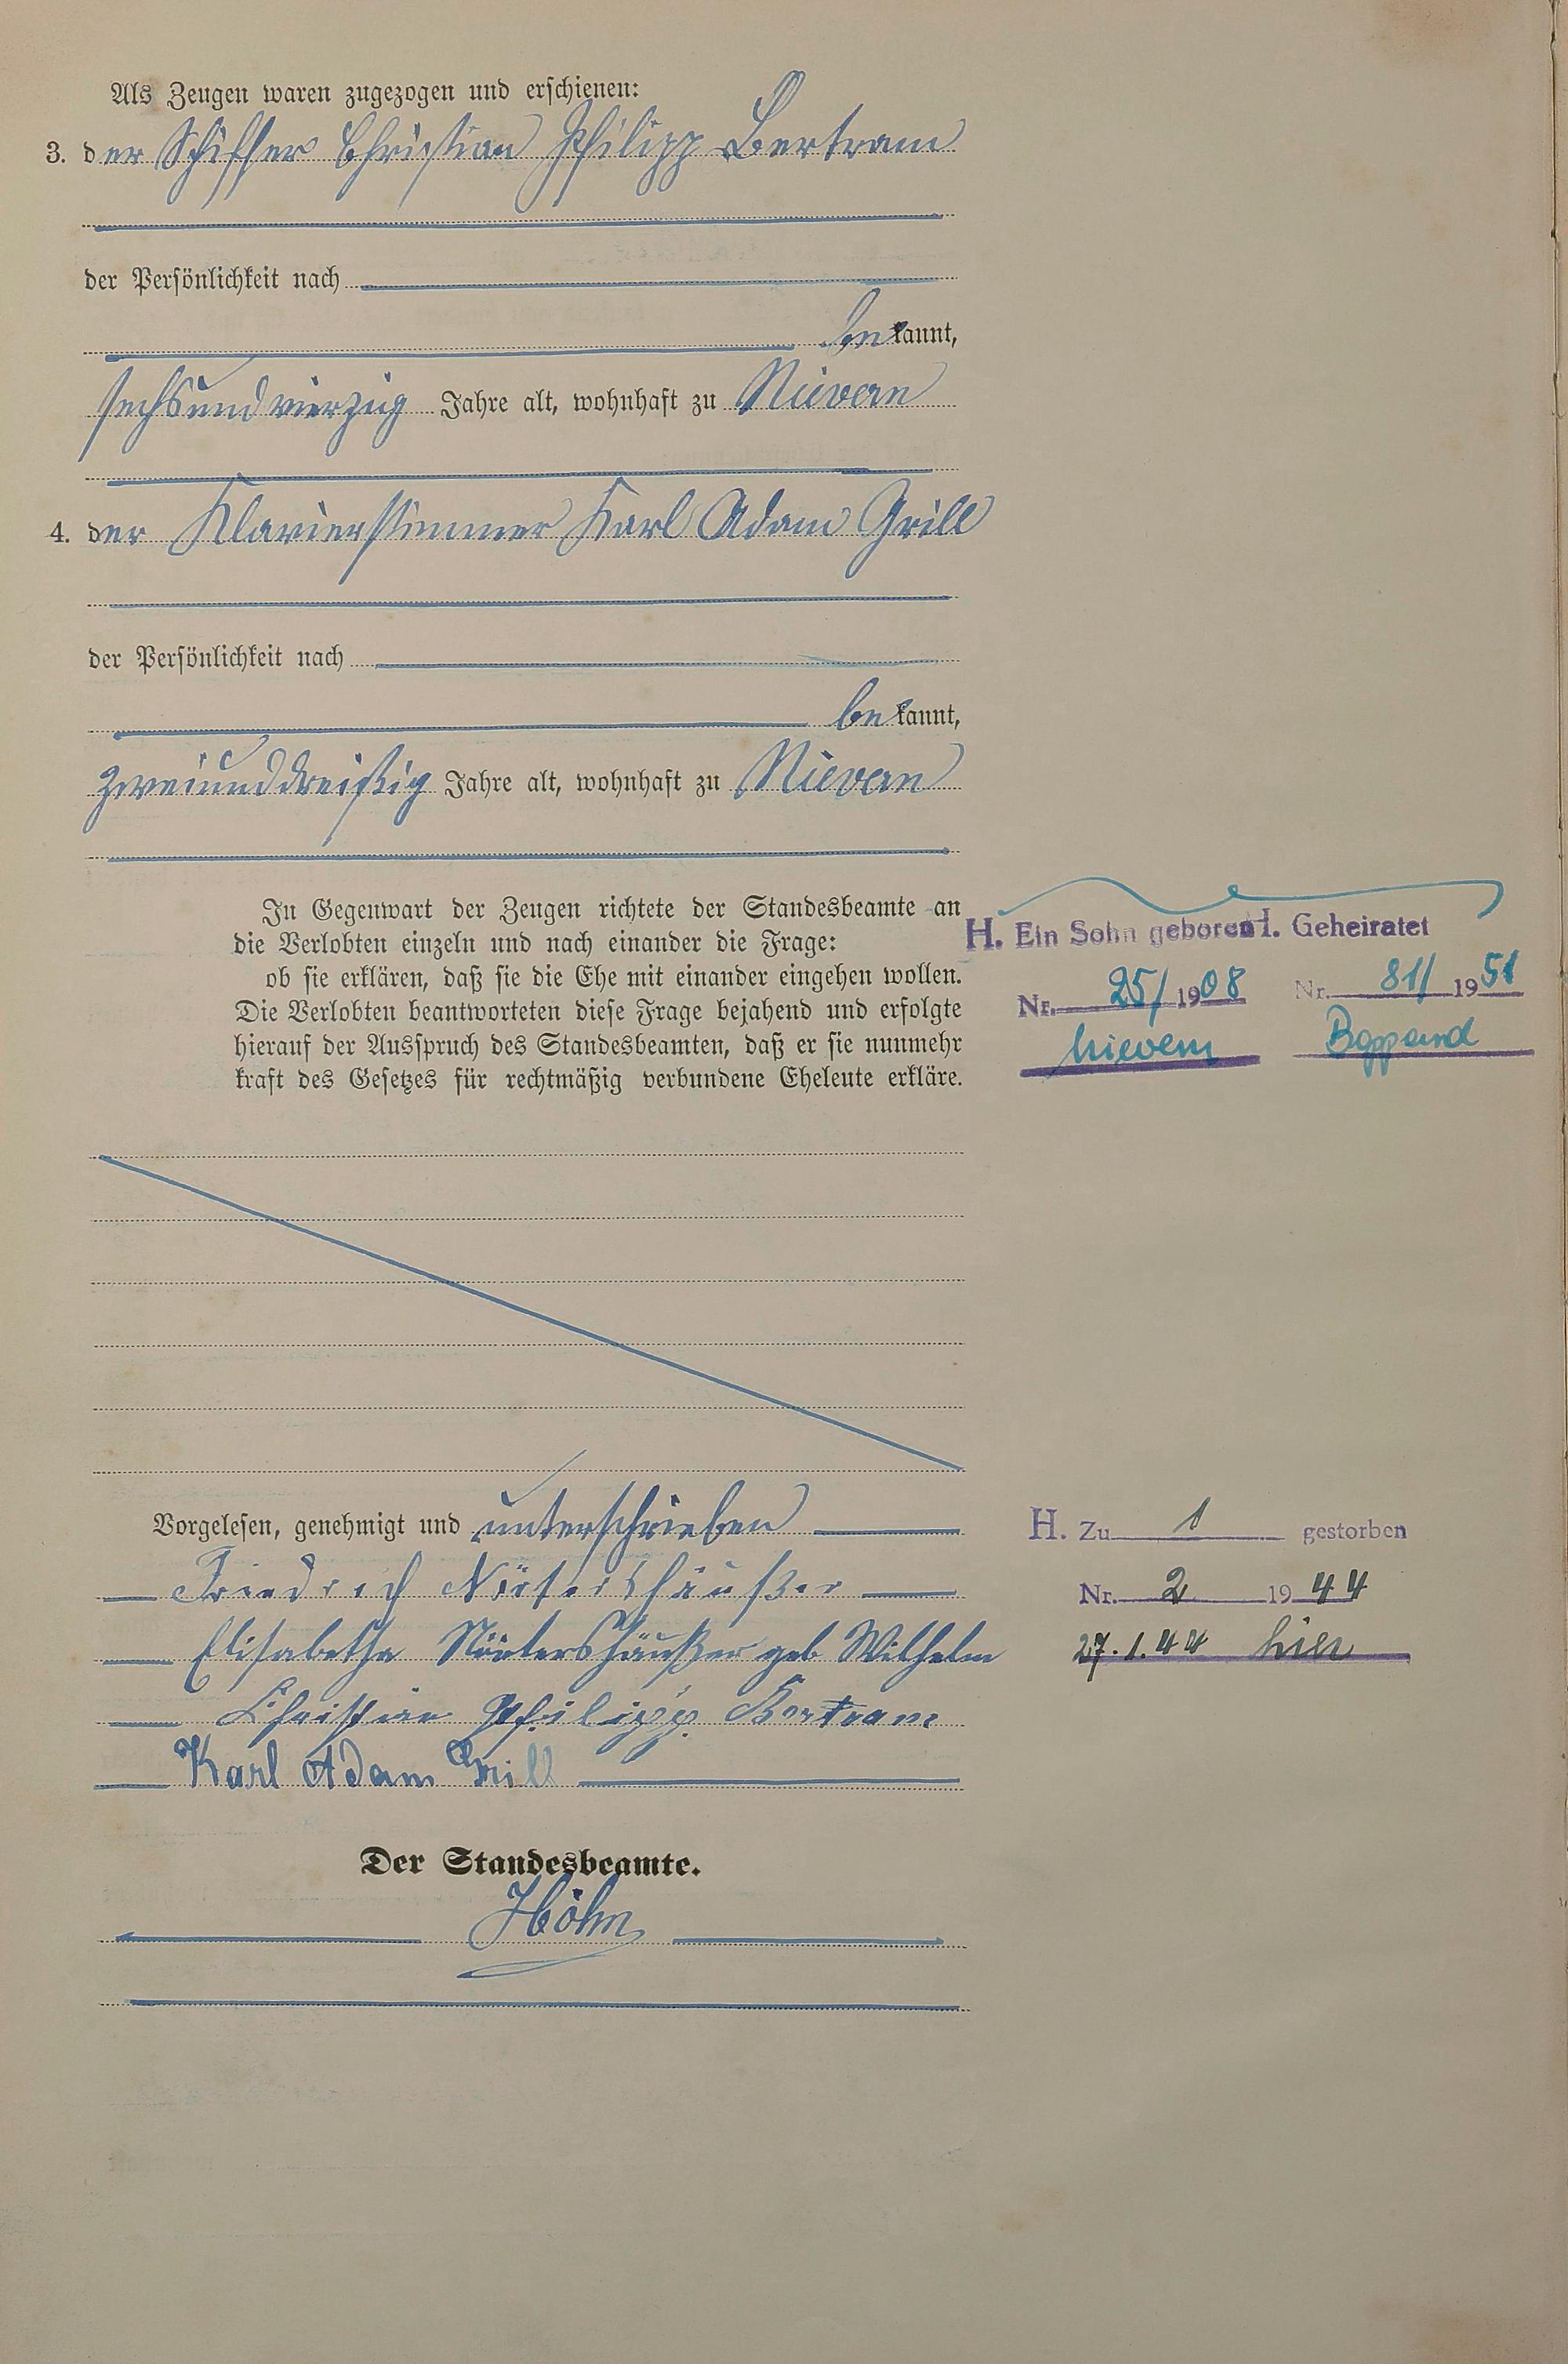 Als Zeugen waren zugezogen und erschienen:
3. der Schiffer Christian Philipp Bertram
der Persönlichkeit nach
bekannt,
sechsundvierzig Jahre alt, wohnhaft zu Nievern
4. der Klavierstimmer Karl Adam Grill
der Persönlichkeit nach
bekannt,
zweiunddreißig Jahre alt, wohnhaft zu Nievern
In Gegenwart der Zeugen richtete der Standesbeamte an
die Verlobten einzeln und nach einander die Frage:
ob sie erklären, daß sie die Ehe mit einander eingehen wollen.
Die Verlobten beantworteten diese Frage bejahend und erfolgte
hierauf der Ausspruch des Standesbeamten, daß er sie nunmehr
kraft des Gesetzes für rechtmäßig verbundene Eheleute erkläre.
H. Ein Sohn geboren
Nr. 25/1908
Nievern
I. Geheiratet
Nr. 81/1951
Boppard
Vorgelesen, genehmigt und unterschrieben
Friedrich Nörtershäußer
Elisabetha Nörtershäußer geb Wilhelm
Christian Philipp Bertram
Karl Adam Grill
H. Zu 1 gestorben
Nr. 2 1944
27.1.44 hier
Der Standesbeamte.
Höhn